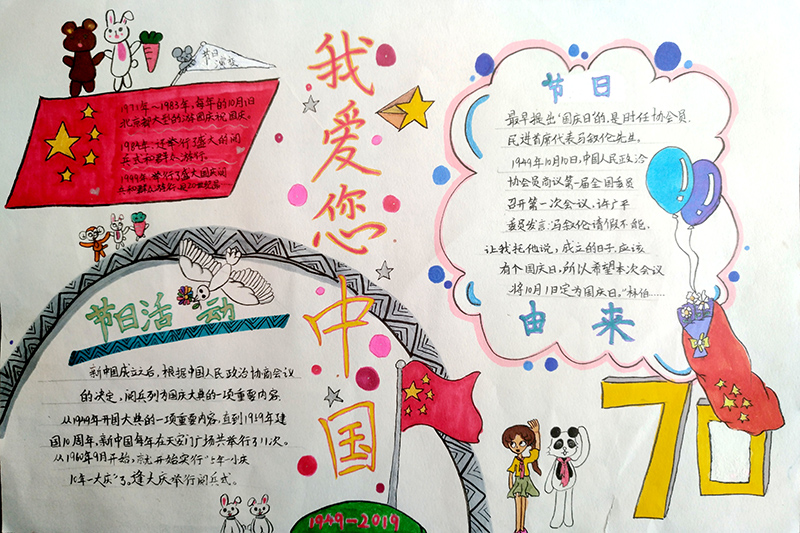 我爱您中国
节日演变
1971年~1983年,每年的10月1日
北京都大型的游园庆祝国庆.
1984年,还举行了盛大的阅
兵式和群众游行.
1999年,举行了盛大国庆阅
节日活动
新中国成立之后,根据中国人民政治协商会议
的决定,阅兵列为国庆大典的一项重要内容.
从1949年开国大典的一项重要内容,直到1959年建
国10周年,新中国每年在天安门广场共举行了11次。
从1960年9月开始,就开始实行"五年一小庆
10年一大庆"了,逢大庆举行阅兵式。
节日
最早提出"国庆日"的,是时任协会员.
民进首席代表马叙伦先生。
1949年10月10日,中国人民政治
协会员商议第一届全国委员
召开第一次会议,许广平
委员发言:冯叙伦请假不能.
让我托他说,成立的日子,应该
有个国庆日,所以希望本次会议
将10月1日定为国庆日,"林伯……
由来
70
1949-2019